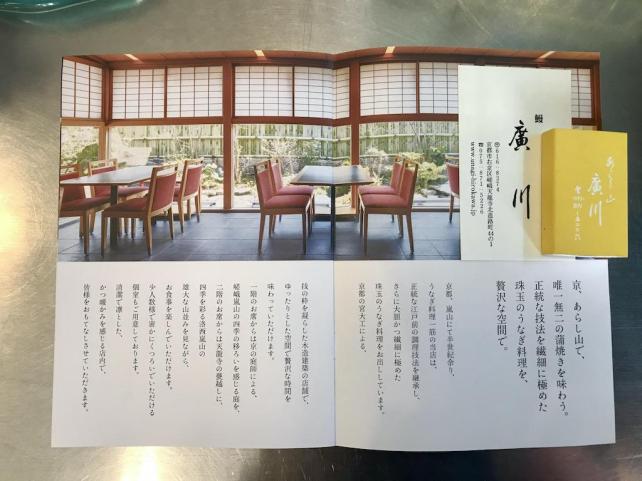 鰻
廣川
〒616-8374
京都市右京区嵯峨天龍寺北造路町44の1
☎075・871・5226
www.unagi-hirokawa.jp
あらし山
廣川
京、あらし山で、
唯一無二の蒲焼きを味わう。
正統な技法を繊細に極めた
珠玉のうなぎ料理を、
贅沢な空間で。
京都、嵐山にて半世紀余り、
うなぎ料理一筋の当店は、
正統な江戸前の調理技法を継承し、
さらに大胆かつ繊細に極めた
珠玉のうなぎ料理をお出ししています。
京都の宮大工による、
技の粋を凝らした木造建築の店舗で、
ゆったりとした空間で贅沢な時間を
味わっていただけます。
一階のお席からは京の庭師による、
嵯峨嵐山の四季の移ろいを感じる庭を、
二階のお席からは天龍寺の甍越しに、
四季を彩る洛西嵐山の
雄大な山並みを見ながら、
お食事を楽しんでいただけます。
少人数様で密かにくつろいでいただける
個室もご用意しております。
清潔で凛とした、
かつ暖かみを感じる店内で、
皆様をおもてなしさせていただきます。